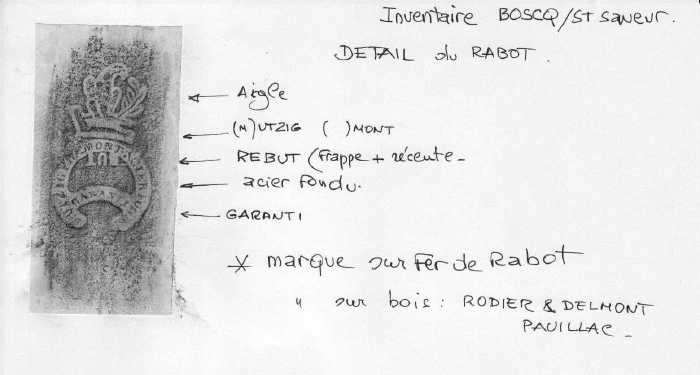 Inventaire BOSCQ/St Saveur.
DETAIL du RABOT.
Aigle
(M)UTZIG ( )MONT
REBUT (Frappe + récente -
acier Fondu.
GARANTI
* marque sur Fer de Rabot
" sur bois : RODIER & DELMONT
PAUILLAC -